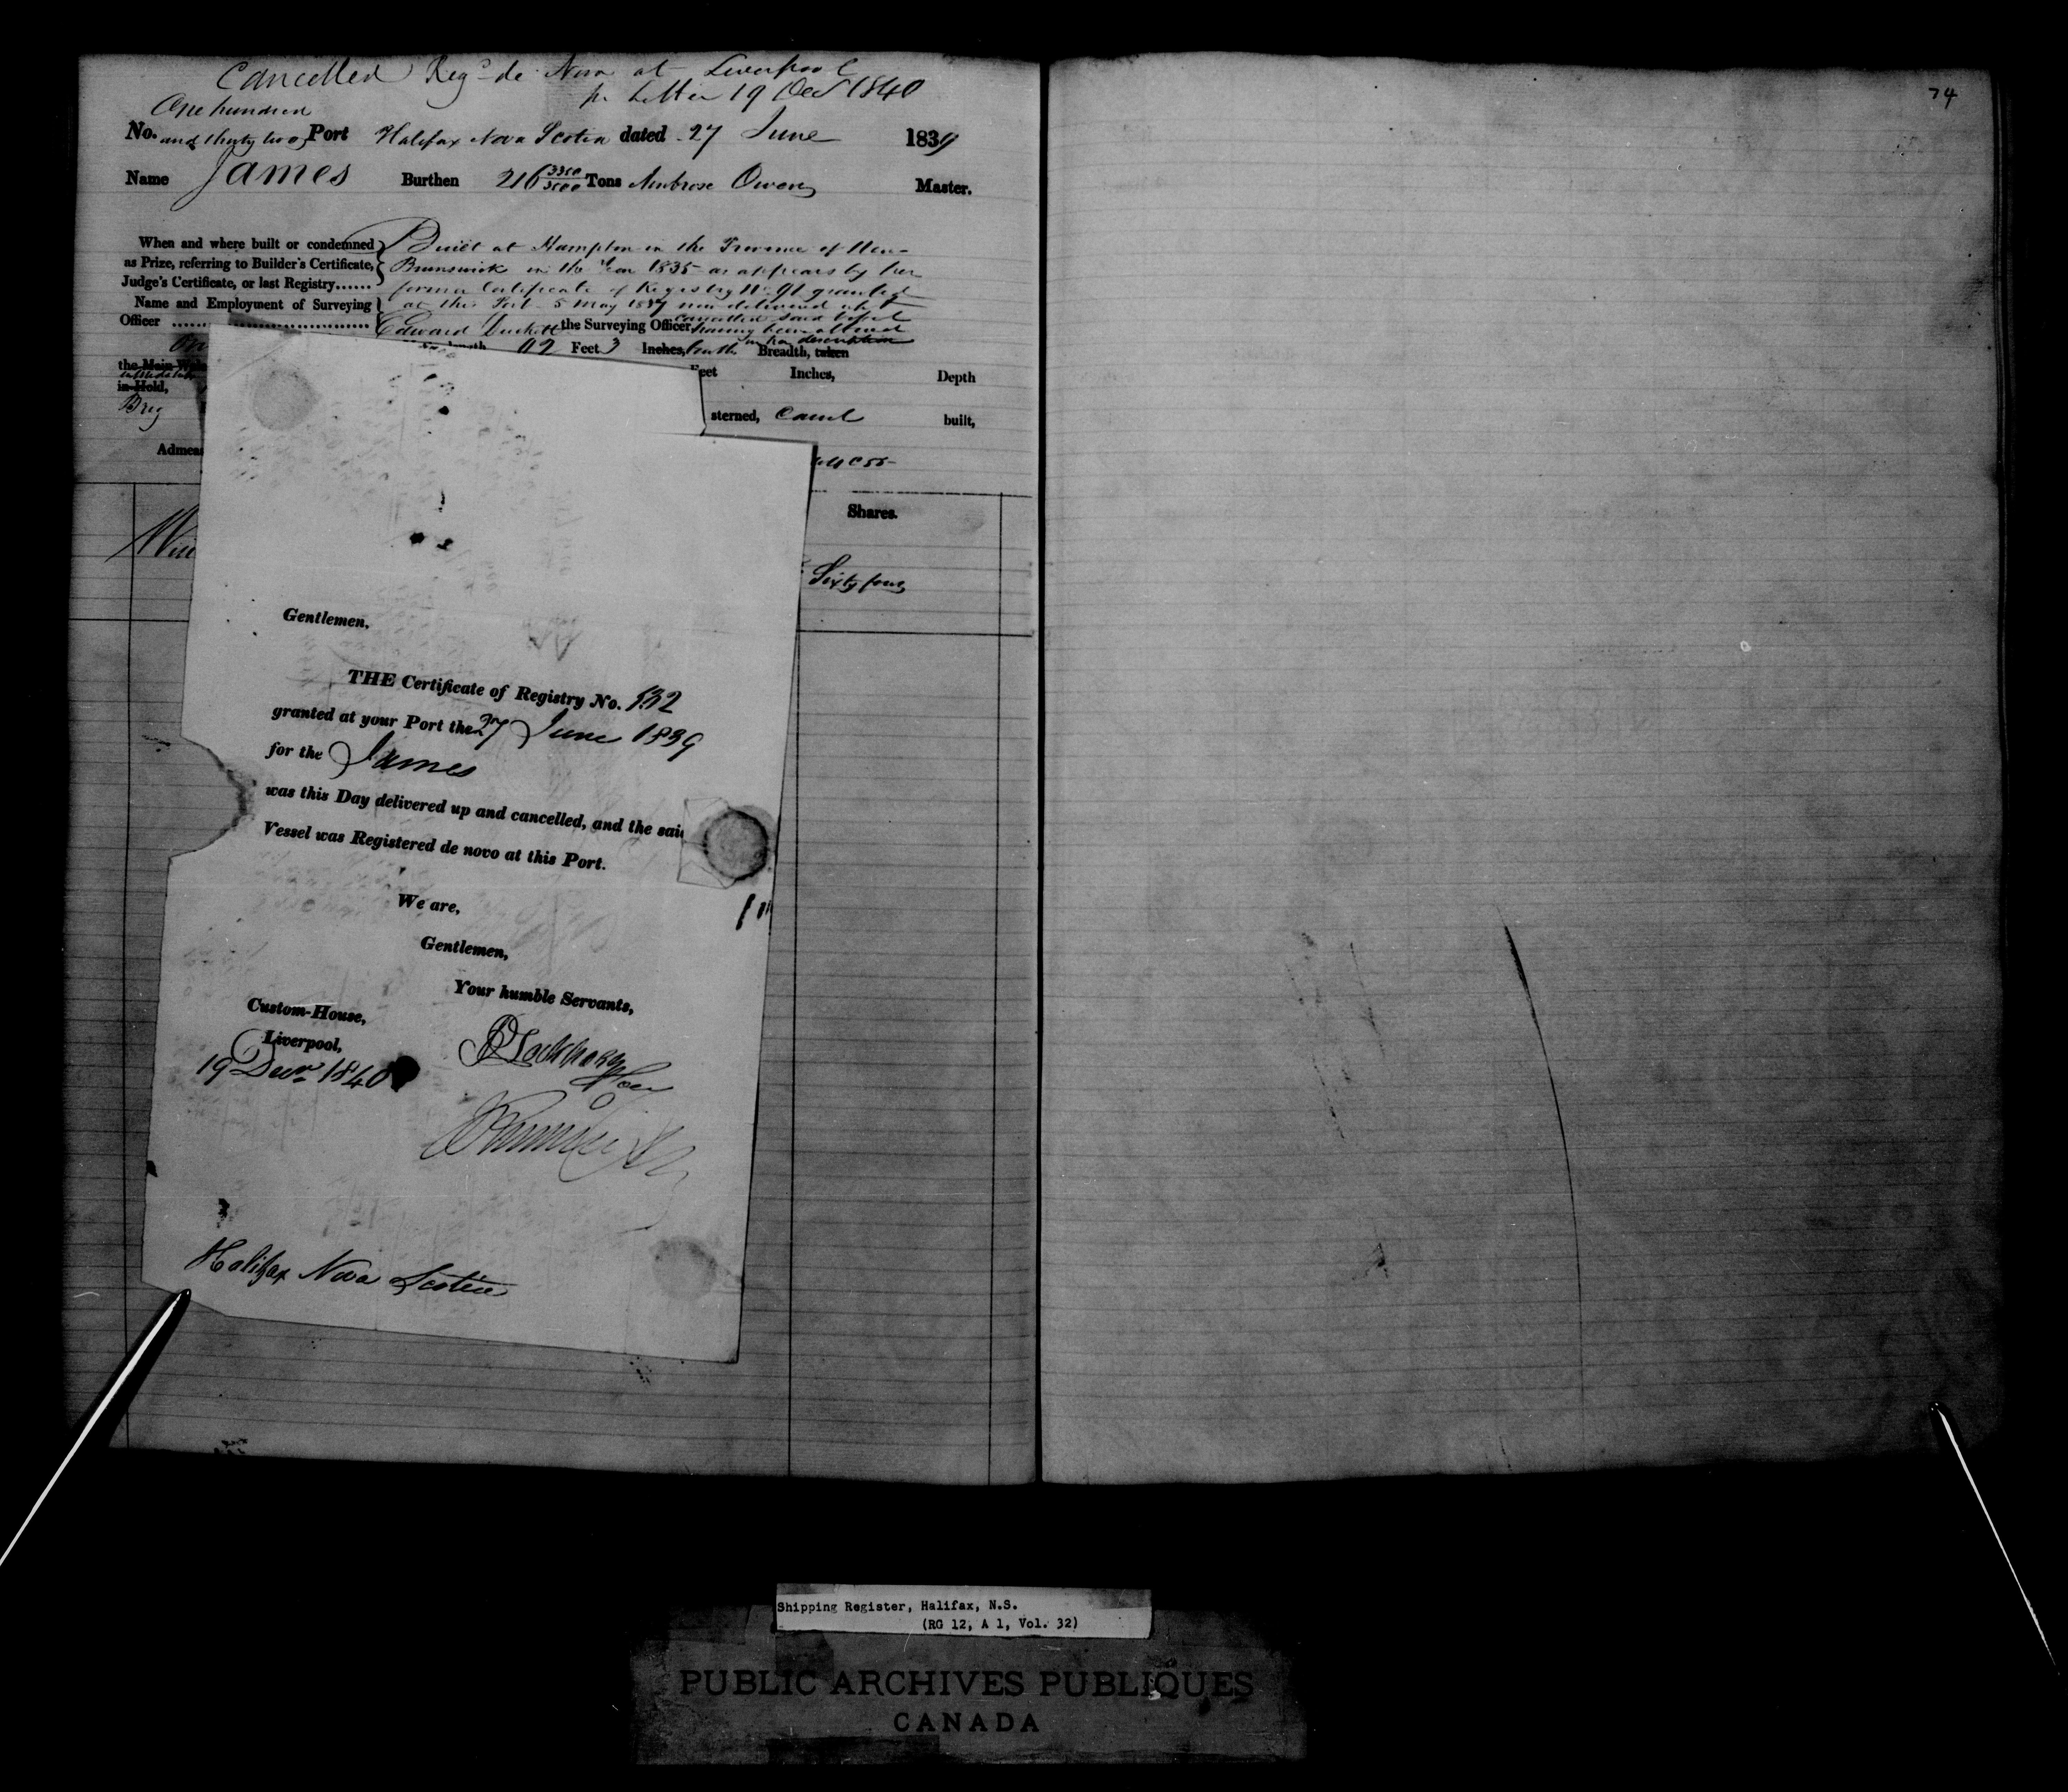 Cancelled Regd de Novo at Liverpool
pr Letter 19 Decr 1840
One hundred
No. and thirty two Port Halifax Nova Scotia dated 27 June 1839
Name James Burthen 216 3300/3500 Tons Ambrose Owen Master.
When and where built or condemned
as Prize, referring to Builder's Certificate,
Judge's Certificate, or last Registry......
Built at Hampton in the Province of New-
Brunswick in the Year 1835 as appears by her
former Certificate of Registry No. 91 granted
at this Port 5 May 1837 now delivered up &
cancelled said Vessel
Name and Employment of Surveying
Officer
Edward the Surveying Officer having been altered
in her description
92 Feet 3 Inches, Breadth, taken
the Main
Feet Inches, Depth
in Hold,
Brig
sterned, Carvel built,
Admeas
Shares.
Sixty four
74
Gentlemen,
THE Certificate of Registry No. 132
granted at your Port the 27 June 1839
for the James
was this Day delivered up and cancelled, and the said
Vessel was Registered de novo at this Port.
We are,
Gentlemen,
Your humble Servants,
Custom-House,
Liverpool,
19 Decr 1840
Halifax Nova Scotia
Shipping Register, Halifax, N.S.
(RG 12, A 1, Vol. 32)
PUBLIC ARCHIVES PUBLIQUES
CANADA